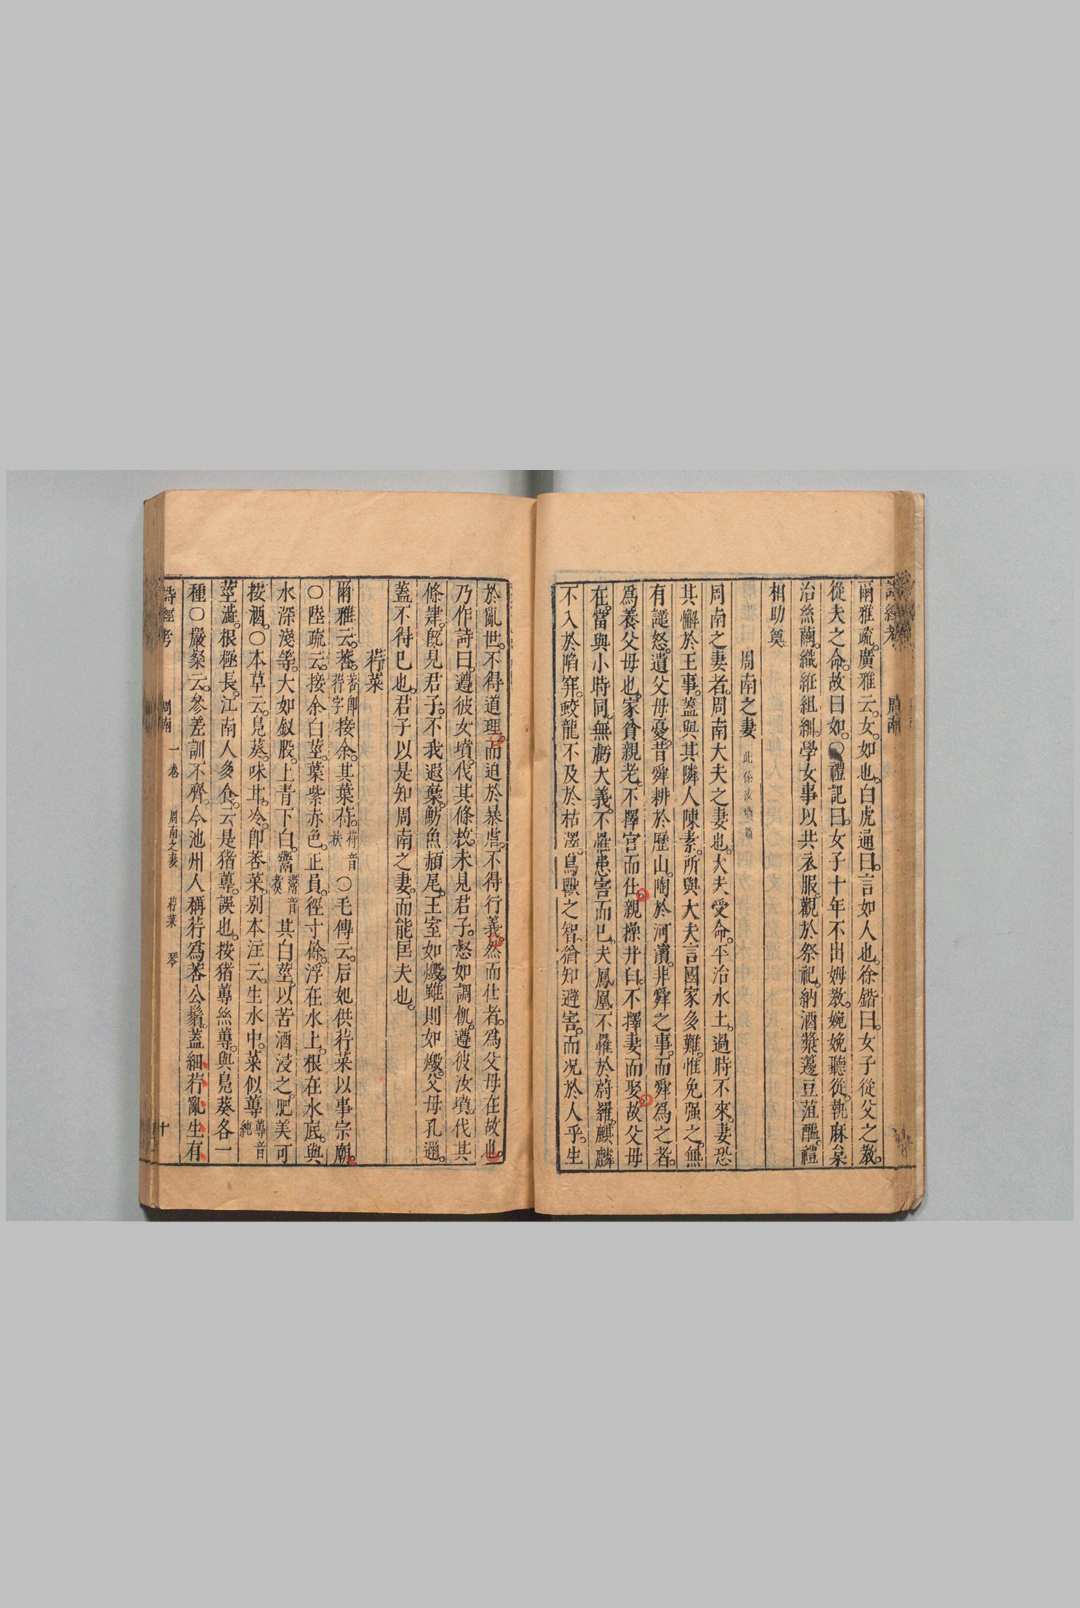 詩經考 周南
爾雅疏。廣雅云。女。如也。白虎通曰。言如人也。徐鍇曰。女子從父之教。
從夫之命。故曰如。○禮記曰。女子十年不出姆教。婉娩聽從。執麻枲
治絲繭。織紝組紃。學女事以共衣服。觀於祭祀。納酒漿籩豆菹醢。禮
相助奠
周南之妻
周南之妻者。周南大夫之妻也。大夫受命。平治水土。過時不來。妻恐
其懈於王事。蓋與其隣人陳素。所與大夫言國家多難。惟免强之。無
有譴怒。遺父母憂。昔舜耕於歷山。陶於河濱。非舜之事。而舜爲之者。
爲養父母也。家貧親老。不擇官而仕。親操井臼。不擇妻而娶。故父母
在。當與小時同。無虧大義。不罹患害而已。夫鳳凰不罹於蔚羅。麒麟
不入於陷穽。蛟龍不及於枯澤。鳥獸之智。猶知避害。而况於人乎。生
於亂世。不得道理。而迫於暴虐。不得行義。然而仕者。爲父母在故也。
乃作詩曰。遵彼女墳。伐其條枚。未見君子。惄如調飢。遵彼汝墳。伐其
條肄。旣見君子。不我遐棄。魴魚頳尾。王室如燬。雖則如燬。父母孔邇。
蓋不得已也。君子以是知周南之妻。而能匡夫也。
荇菜
爾雅云。莕。莕卽荇字接余。其葉苻。苻音扶○毛傳云。后妃供荇菜以事宗廟。
○陸疏云。接余白莖。葉紫赤色。正員。徑寸餘。浮在水上。根在水底。與
水深淺等。大如釵股。上青下白。鬻鬻音煮其白莖。以苦酒浸之。肥美可
按酒。○本草云。鳧葵。味甘。冷。卽莕菜。别本注云。生水中。菜似蓴蓴音純
莖澁。根極長。江南人多食。云是猪蓴。誤也。按猪蓴絲蓴。與鳧葵各一
種○嚴粲云。參差訓不齊。今池州人稱荇爲莕公鬚。蓋細荇亂生有
詩經考 周南 一卷 周南之妻 荇菜 琴 十